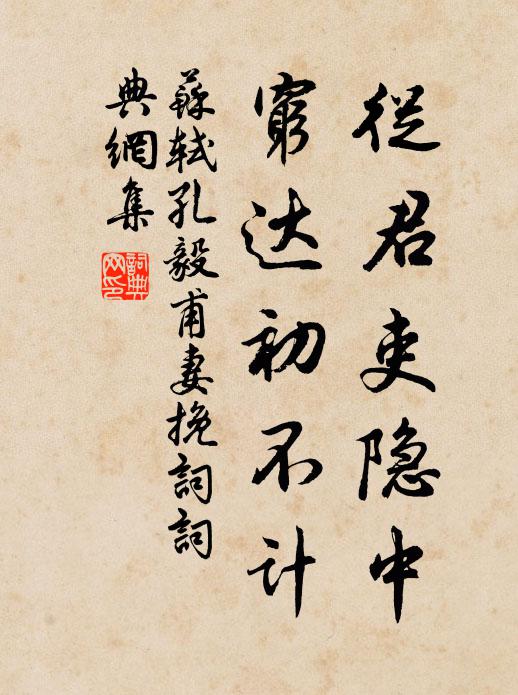 從君吏隐中
窮达初不计
蘇軾孔毅甫妻挽詞詞
典網集
詞典网印